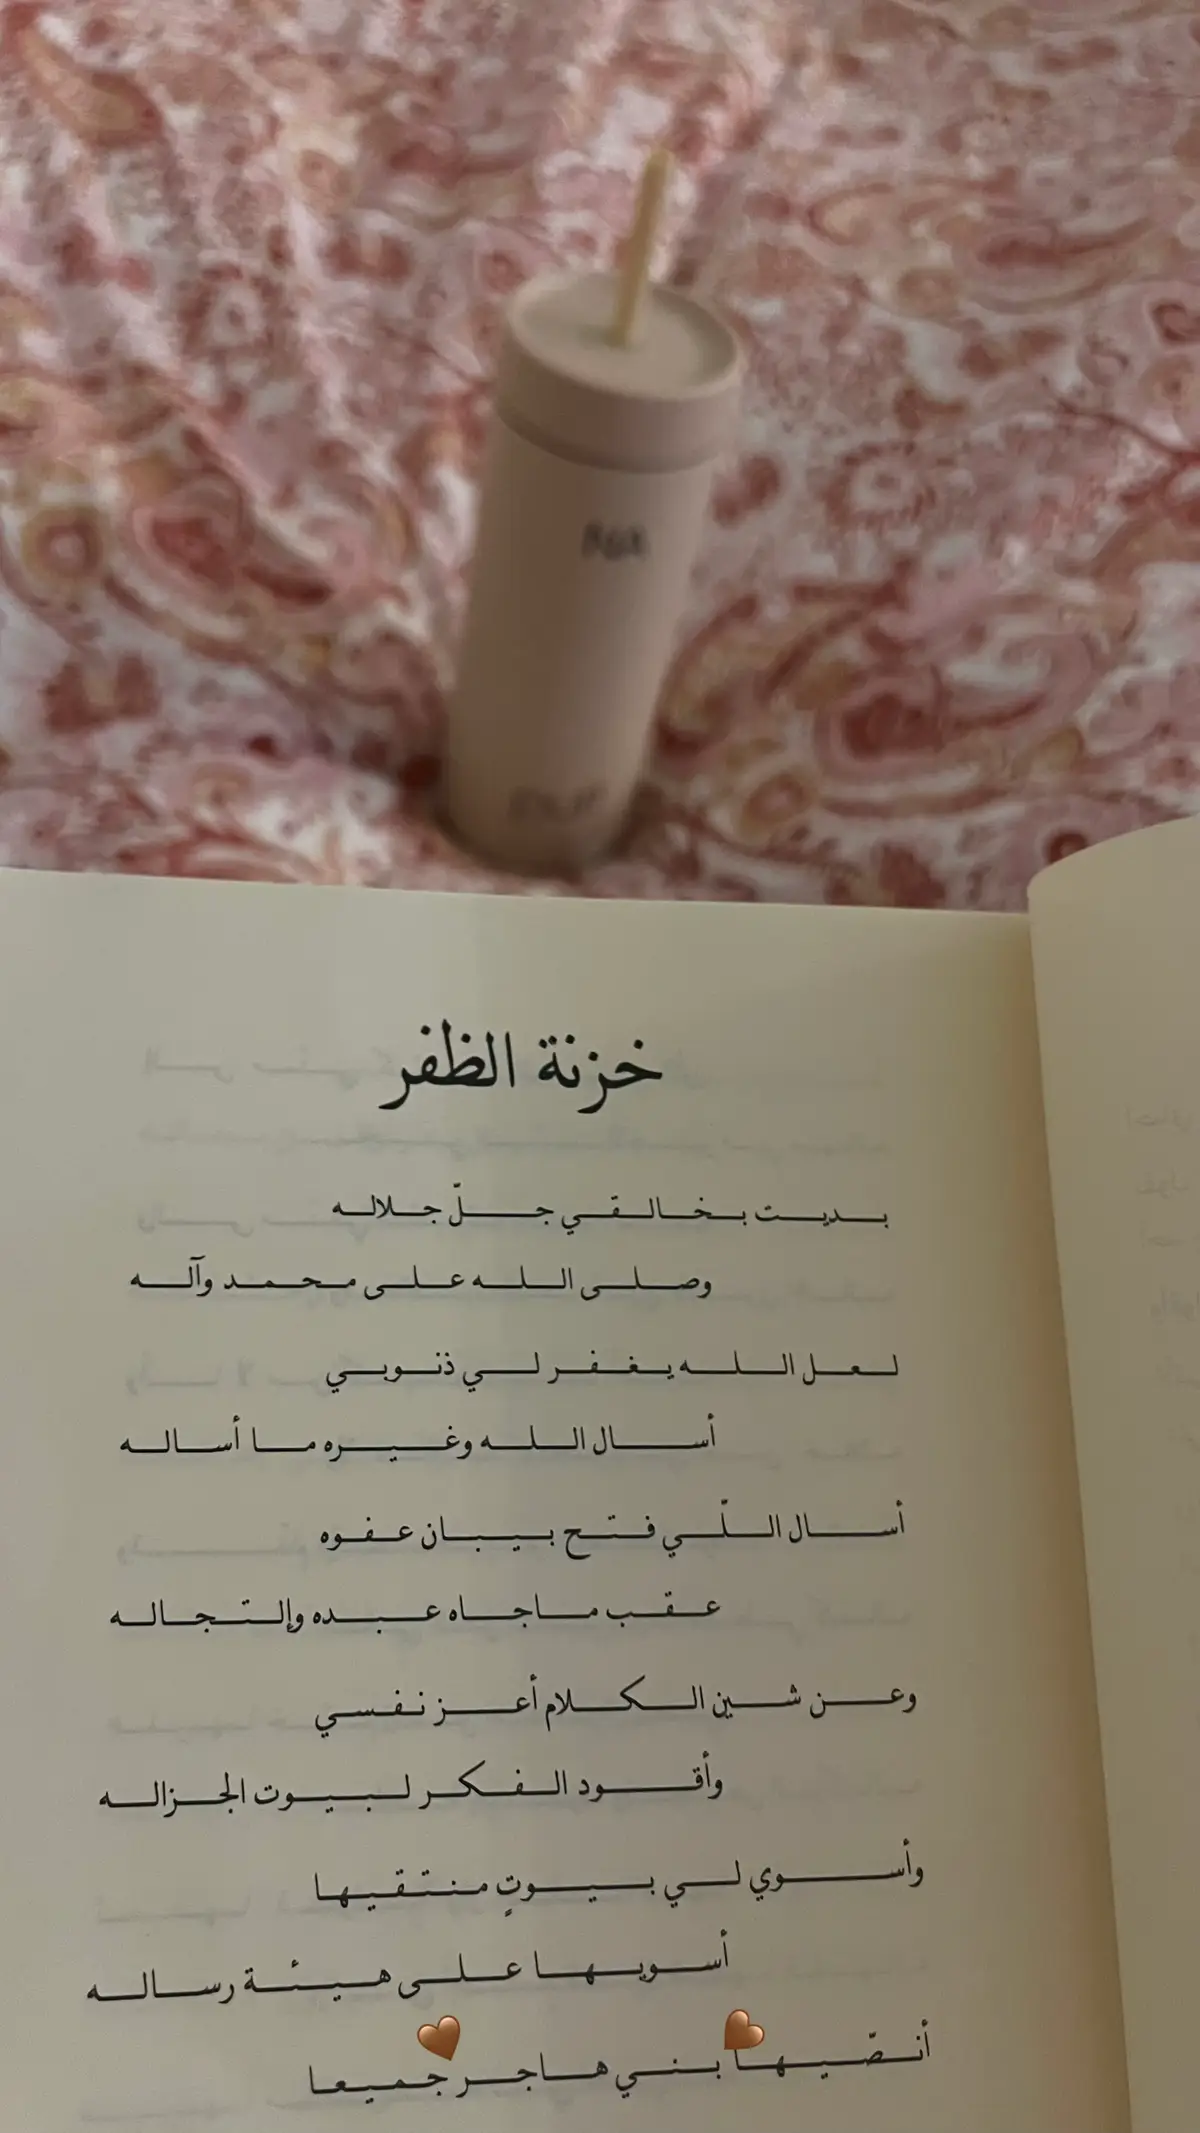 خزنة الظفر
بديت بخالقي جلّ جلاله
وصلى الله على محمد وآله
لعل الله يغفر لي ذنوبي
أسال الله وغيره ما أساله
أسال اللّي فتح بيبان عفوه
عقب ماجاه عبده وإلتجاله
وعن شين الكلام أعز نفسي
وأقود الفكر لبيوت الجزاله
وأسوي لي بيوتٍ منتقيها
أسويها على هيئة رساله
أنصّيها بني هاجر جميعا